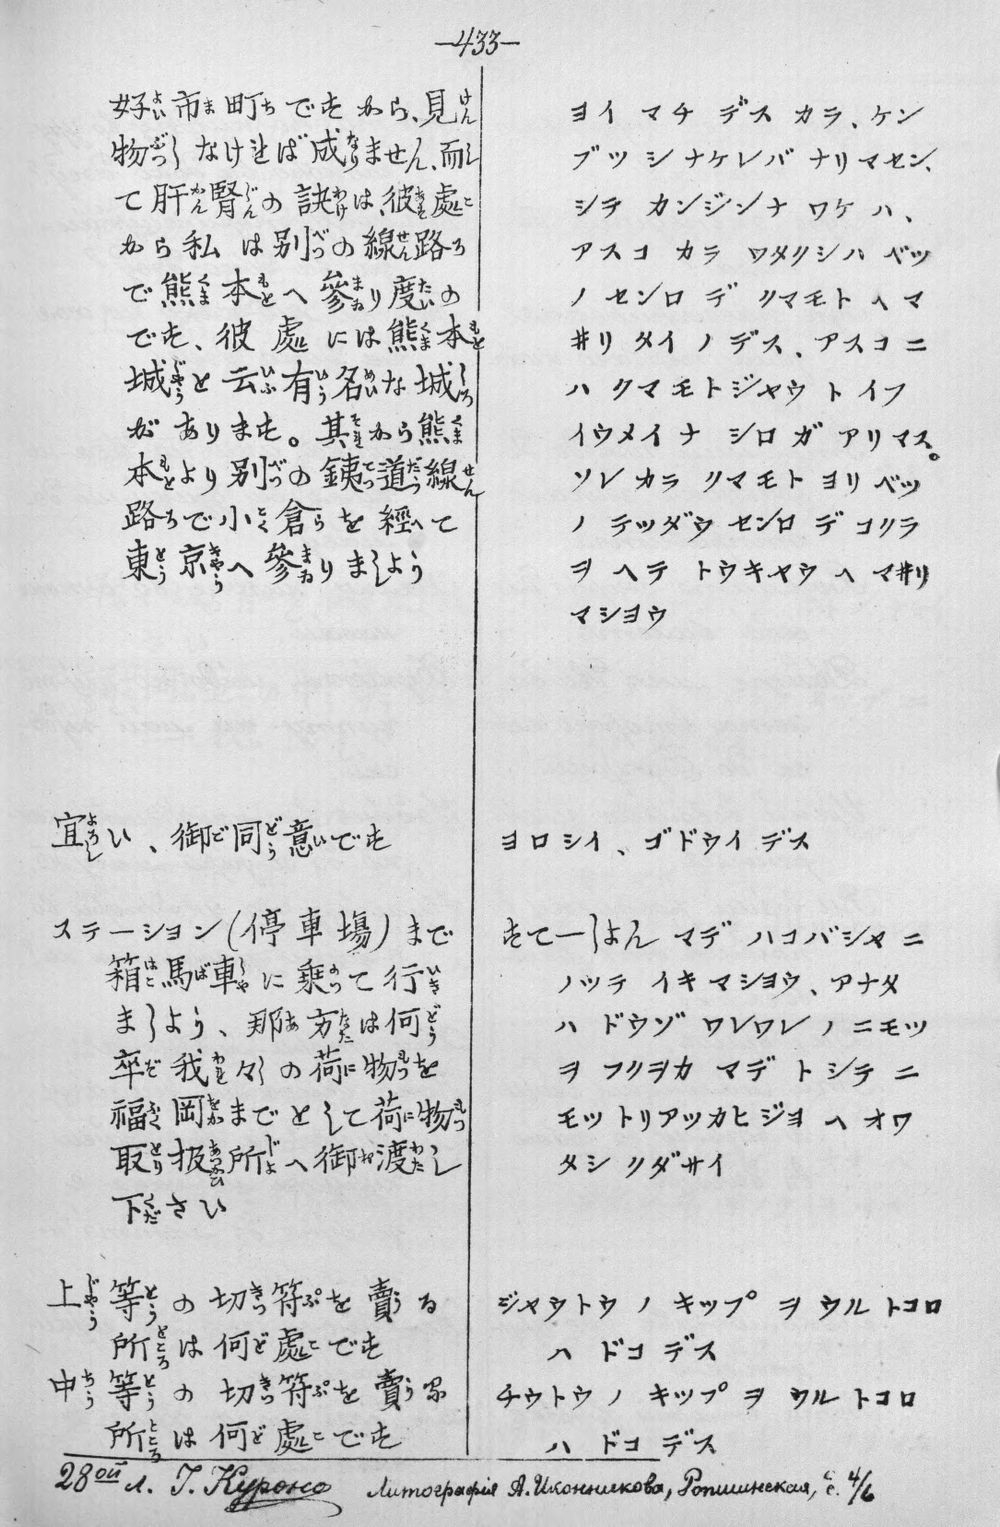 —433—
好い市町ですから、見
物しなければ成ません、而し
て肝腎の訣は、彼處
から私は別の線路
で熊本へ參り度の
です、彼處には熊本
城と云有名な城
があります。其から熊
本より別の銕道線
路で小倉を經て
東京へ參りましよう
宜い、御同意です
ステーション(停車場)まで
箱馬車に乗て行
ましよう、那方は何
卒我々の荷物を
福岡までとして荷物
取扱所へ御渡し
下さい
上等の切符を賣る
所は何處です
中等の切符を賣る
所は何處です
ヨイ マチ デス カラ、ケン
ブツ シ ナケレバ ナリ マセン、
シテ カンジンナ ワケ ハ、
アスコ カラ ワタクシハ ベツ
ノ センロ デ クマモト ヘ マ
ヰリ タイ ノ デス、アスコ ニ
ハ クマモトジャウ ト イフ
イウメイ ナ シロ ガ アリ マス。
ソレ カラ クマモト ヨリ ベツ
ノ テツダウ センロ デ コクラ
ヲ ヘテ トウキャウ ヘ マヰリ
マシヨウ
ヨロシイ、ゴドウイ デス
すてーしよん マデ ハコバシャ ニ
ノッテ イキ マシヨウ、アナタ
ハ ドウゾ ワレワレ ノ ニモツ
ヲ フクヲカ マデ トシテ ニ
モツ トリアツカヒ ジヨ ヘ オワ
タシ クダサイ
ジャウトウ ノ キップ ヲ ウル トコロ
ハ ドコ デス
チウトウ ノ キップ ヲ ウル トコロ
ハ ドコ デス
28ой л. Г. Куроно Литографія А. Иконникова, Ропшинская, с. 4/6